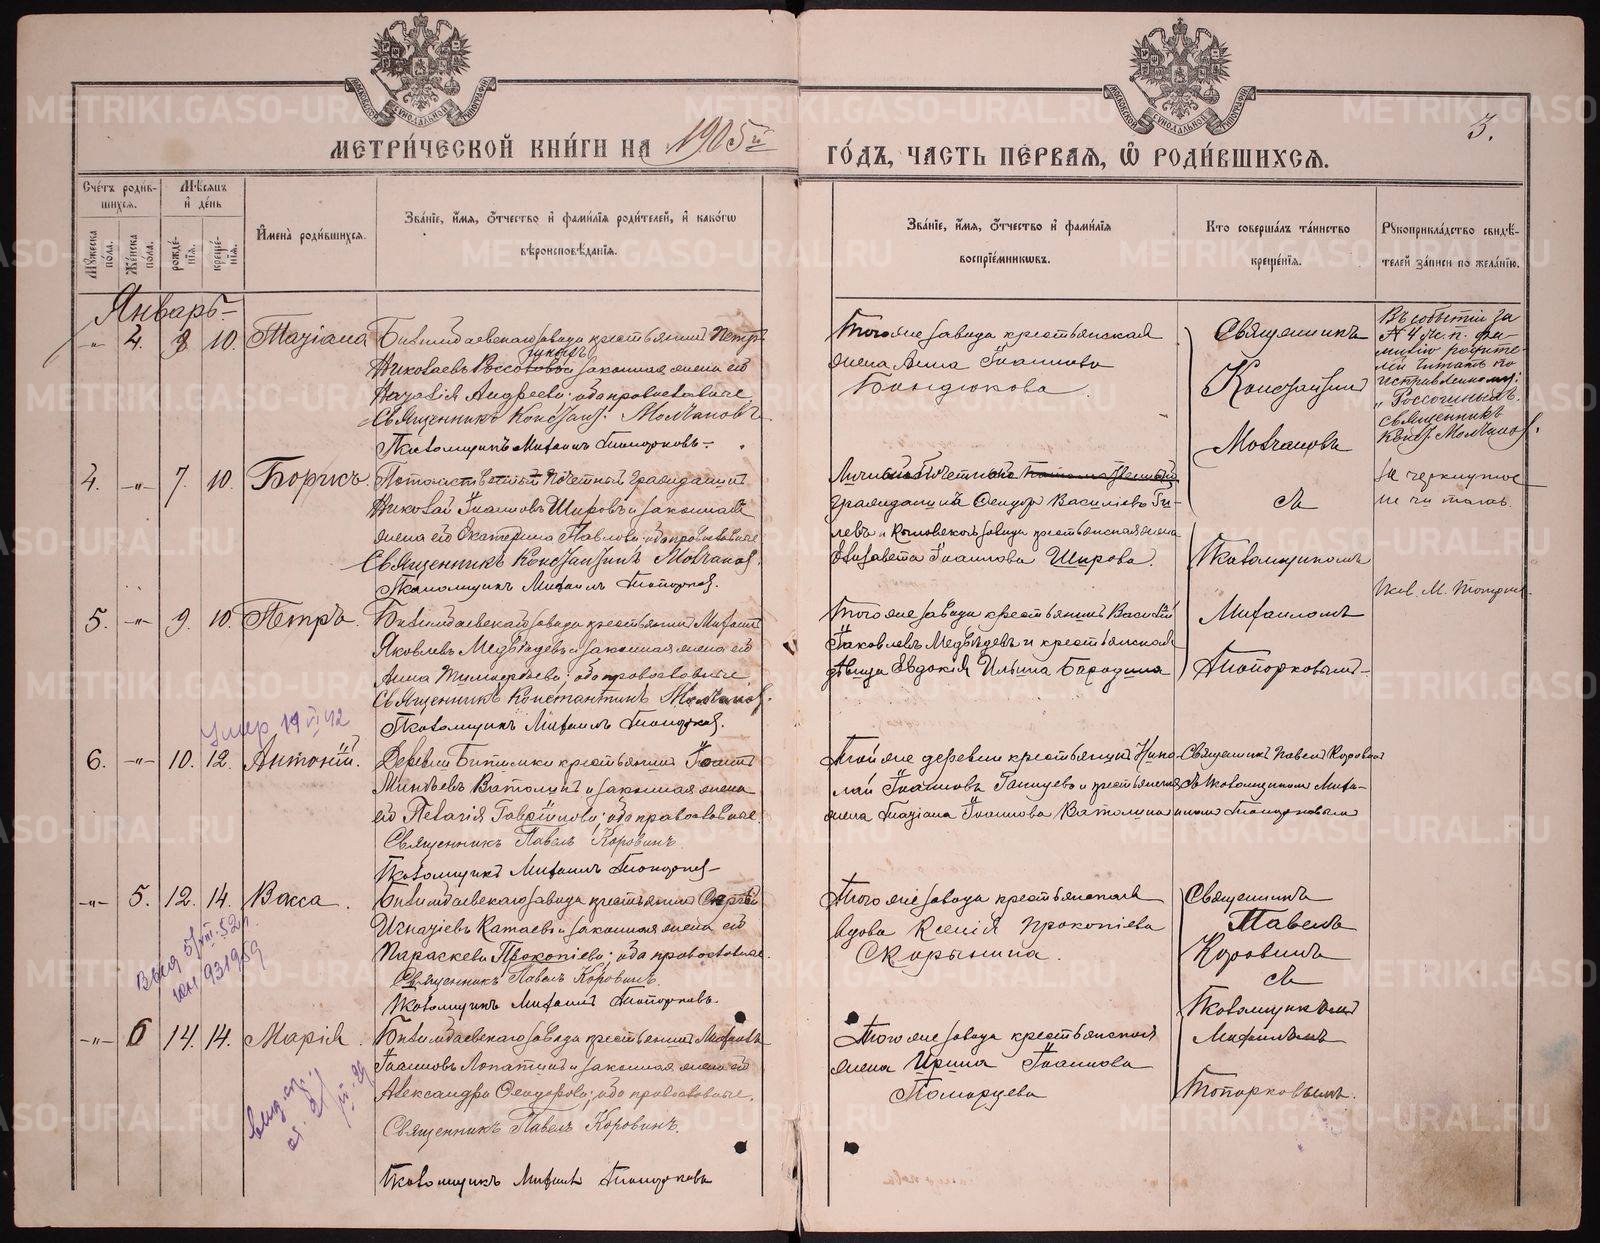 МЕТРИ́ЧЕСКОЙ КНИ́ГИ НА 1905й ГО́ДЪ, ЧАСТЬ ПЕ́РВАЯ, Ѡ РОДИ́ВШИХСЯ.
3.
Сче́тъ роди́вшихся.
Мѣ́сяцъ и де́нь
Имена̀ роди́вшихся.
Зва́ніе, и́мя, о́тчество и фами́лія роди́телей, и како́гѡ вѣроисповѣ́данія.
Зва́ніе, и́мя, о́тчество и фами́лія воспріе́мникѡвъ.
Кто соверша́лъ та́инство креще́нія.
Рукоприкла́дство свидѣ́телей за́писи по жела́нію.
Му́жеска по́ла.
Же́нска по́ла.
рожде́нія.
креще́нія.
Январь
-"- 4. 8 10. Татіана
Билимбаевскаго завода крестьянинъ Петръ
Николаевъ и законная жена его
Наталія Андреева; оба православные
Священникъ Констант. Молчановъ
Псаломщикъ Михаилъ Топорковъ.
Того же завода крестьянская
жена Анна Іоаннова
Бондюкова
Священникъ
Константинъ
Молчановъ
съ
Псаломщикомъ
Михаиломъ
Топорковымъ
Въ событіи за
№ 4 ж. п. фамилію родителей читать по
исправленному:
"Россогиныхъ".
Священникъ
Конст. Молчанов.
4. -"- 7. 10. Борисъ.
Потомственный почетный гражданинъ
Николай Іоанновъ Шировъ и законная
жена его Екатерина Павлова; оба православные
Священникъ Константинъ Молчанов.
Псаломщикъ Михаилъ Топорков.
гражданинъ Феодоръ Василіевъ
завода крестьянская жена
Елизавета Іоаннова Широва.
За черкнутое
не читать.
Псал. М. Топорков.
5. -"- 9. 10. Петръ.
Билимбаевскаго завода крестьянинъ Михаилъ
Яковлевъ Медвѣдевъ и законная жена его
Анна Тимофеева; оба православные
Священникъ Константинъ Молчанов.
Псаломщикъ Михаилъ Топорков.
Того же завода крестьянинъ Василій
Іаковлевъ Медвѣдевъ и крестьянская
дѣвица Евдокія Ильина Бородина
Умер 19 VI 42
6. -"- 10. 12. Антоній.
Деревни Битимки крестьянинъ Іоаннъ
Ватолинъ и законная жена
его Пелагія Гавріилова; оба православные.
Священникъ Павелъ Коровинъ.
Псаломщикъ Михаилъ Топорков
Той же деревни крестьянинъ Николай Іоанновъ и крестьянская
жена Татіана Іоаннова Ватолина
Священникъ Павелъ Коровинъ
съ псаломщикомъ Михаиломъ Топорковымъ
-"- 5. 12. 14. Васса.
Билимбаевскаго завода крестьянинъ Сергѣй
Игнатіевъ Катаевъ и законная жена его
Параскева Прокопіева; оба православные.
Священникъ Павелъ Коровинъ.
Псаломщикъ Михаилъ Топорковъ.
Того же завода крестьянская
вдова Ксенія Прокопіева
Скорынина.
Священникъ
Павелъ
Коровинъ
съ
Псаломщикомъ
Михаиломъ
Топорковымъ.
931959
-"- 6 14. 14. Марія.
Билимбаевскаго завода крестьянинъ Михаилъ
Іоанновъ Лопатинъ и законная жена его
Александра Феодорова; оба православные.
Священникъ Павелъ Коровинъ.
Псаломщикъ Михаилъ Топорковъ
Того же завода крестьянская
жена Ирина Іоаннова
Поморцева